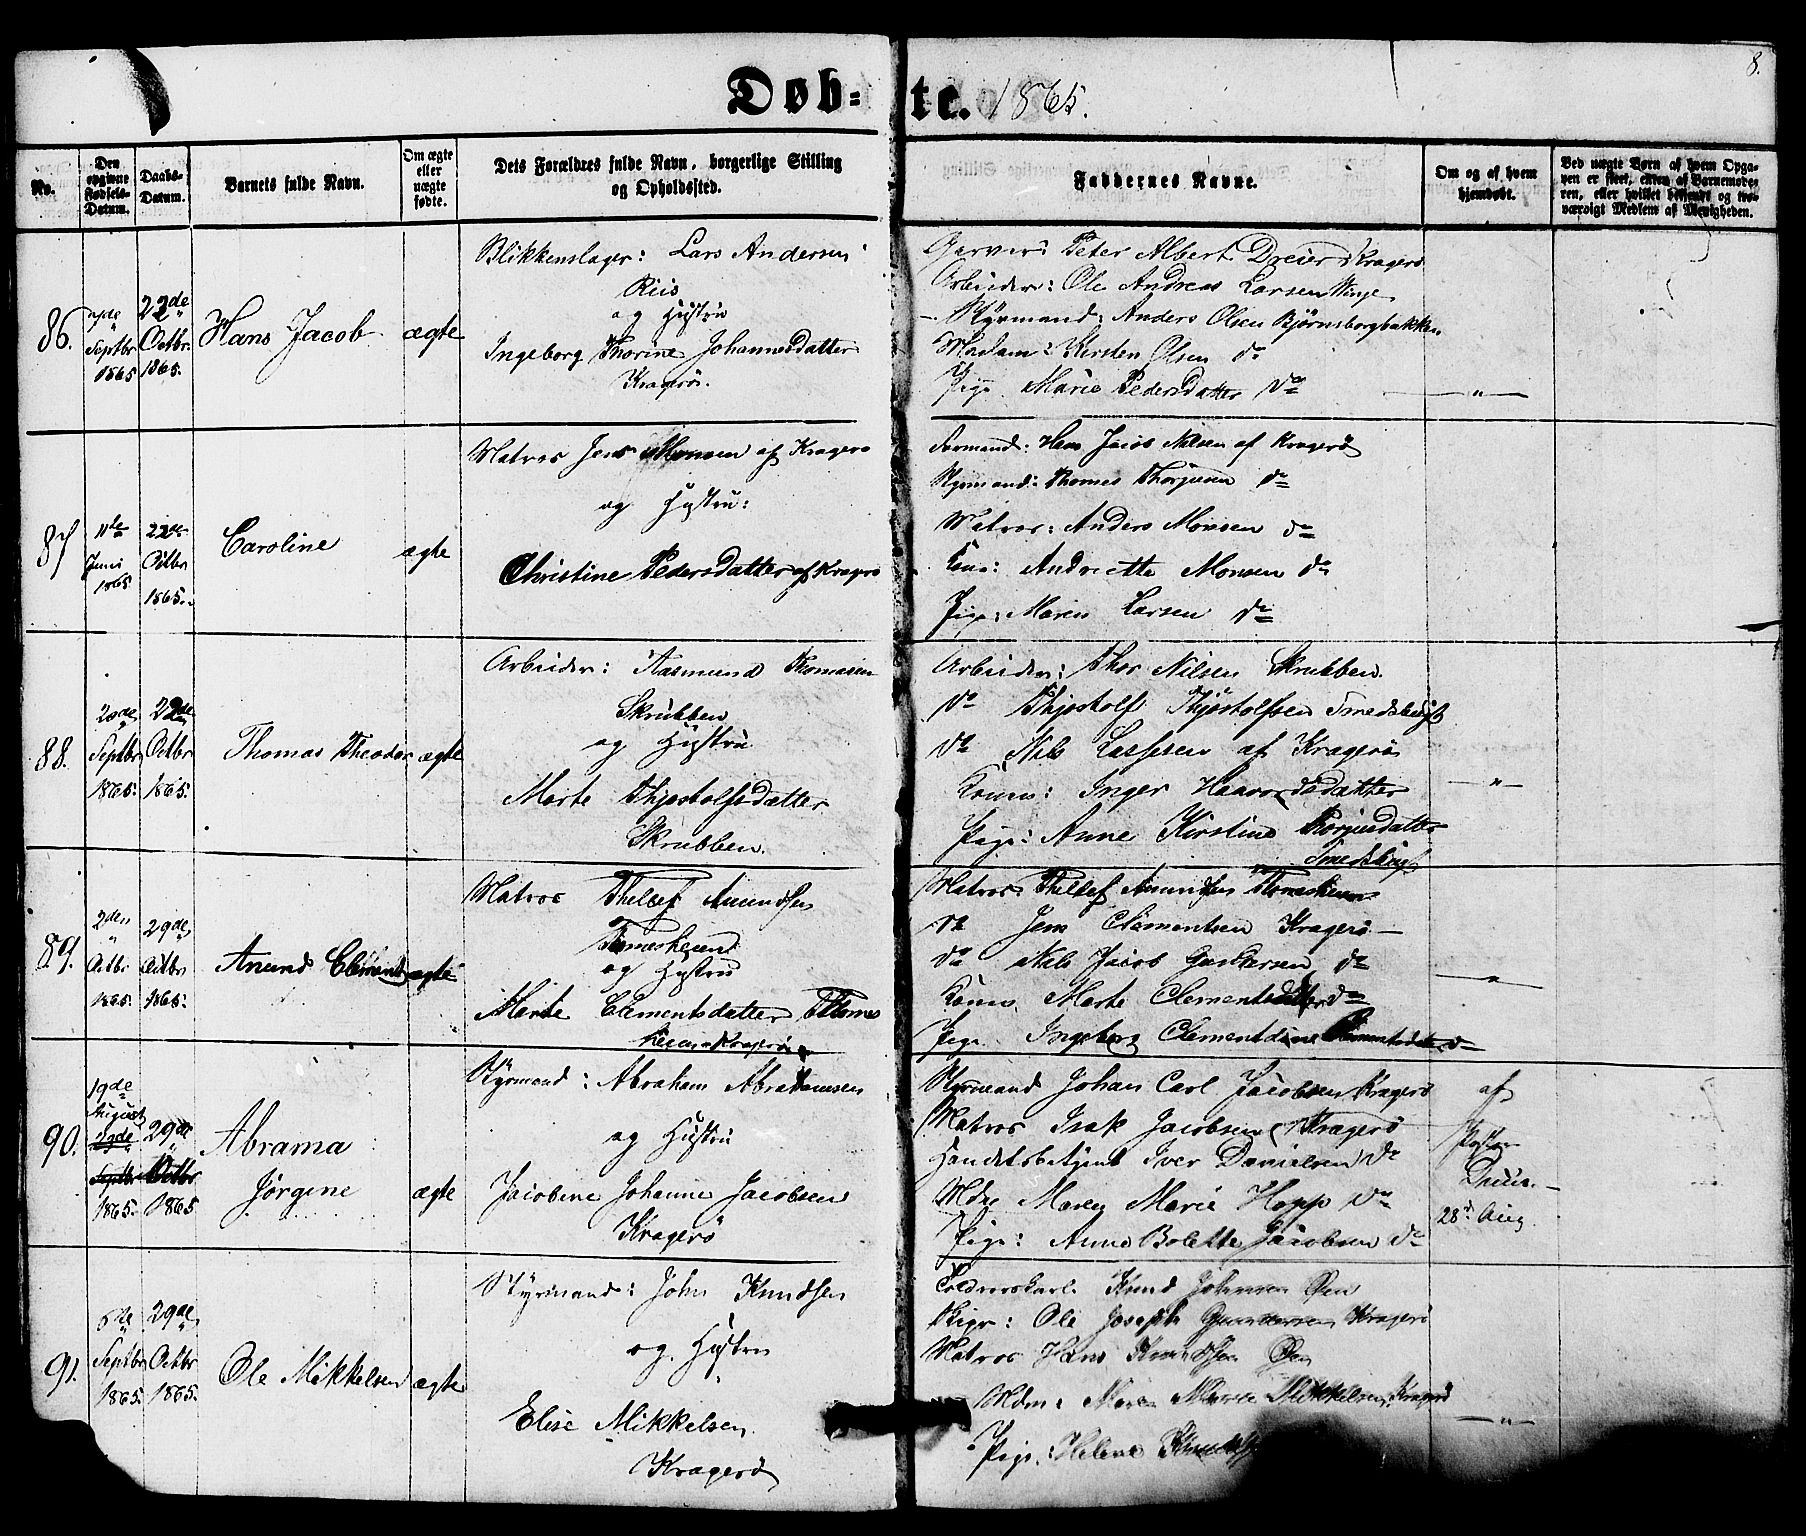 8.
Døb- te. 1865.
No.
Den opgivne Fødsels-Datum.
Daabs-Datum.
Barnets fulde Navn.
Om ægte eller uægte fødte.
Dets Forældres fulde Navn, borgerlige Stilling og Opholdssted.
Faddernes Navne.
Om og af hvem hjemdøbt.
Ved uægte Børn af hvem Opga-
ven er skeet, enten af Barnemode-
ren, eller hvilket bekjendt og tro-
værdigt Medlem af Menigheden.
86.
Septbr
1865
22de
Octbr
1865.
Hans Jacob
ægte
Blikkenslager: Lars Andersen
Riis
og Hustru
Ingeborg Thorine Johannesdatter
Kragerø.
Garver: Peter Albert Dreier Kragerø
Arbeider: Ole Andreas Larsen Winje
Styrmand: Anders Olsen Bjørnsborgbakken
Madam: Kirsten Olsen do
Pige Marie Pedersdatter do
"
87
11te
Juni
1865
22de
Octbr
1865.
Caroline
ægte
Matros Jens Monsen af Kragerø
og Hustru:
Christine Pedersdatter af Kragerø
Formand: Hans Jacob Nilsen af Kragerø
Styrmand: Thomas do
Matros: Anders Monsen do
Kone: Andrette Monsen do
Pige: Maren Larsen do
88.
20de
Septbr
1865.
22de
Octbr
1865.
Thomas Theodor
ægte
Arbeider: Aasmund Thomasen
Skrubben
og Hustru
Marte Thjostolfsdatter
Skrubben.
Arbeider: Thor Nilsen Skrubben.
do Thjostolf Thjostolfsen Smedsbugt
do Nils Lassesen af Kragerø
Konen: Inger Haavordsdatter
Pige: Anne Kirstine Thorjusdatter
Smedsbugt
"
89.
2den
"
Octbr
1865.
29de
Octbr
1865.
Anund Clement
ægte
Matros Thellef Anundsen
og Hustru
Marte Clementsdatter
Matros Thellef Anundsen
do Jens Clementsen Kragerø
do Nils Jacob Gundersen do
Konen Marte Clementsdatter do
Pige Ingeborg Clementsdatter do
"
90.
19de
August
29de
Septbr
1865.
29de
Octbr
1865
Abrama
Jørgine
ægte
Styrmand: Abraham Abrahamsen
og Hustru
Jacobine Johanne Jacobsen
Kragerø
Styrmand Johan Carl Jacobsen Kragerø
Matros Isak Jacobsen Kragerø
Handelsbetjent Iver Danielsen do
Mdm Maren Marie Hopp do
Pige: Anne Bolette Jacobsen do
af
Pastor
28d Aug.
91.
6te
"
Septbr
1865.
29de
"
Octbr
1865.
Ole Mikkelsen
ægte
Styrmand: John Knudsen
og Hustru
Elise Mikkelsen
Kragerø
Knud Johnsen Øen
Ole Joseph Gundersen Kragerø
Matros Hans Knudsen Øen
Mdm: Maren Marie Mikkelsen Kragerø
Pige: Helene
"